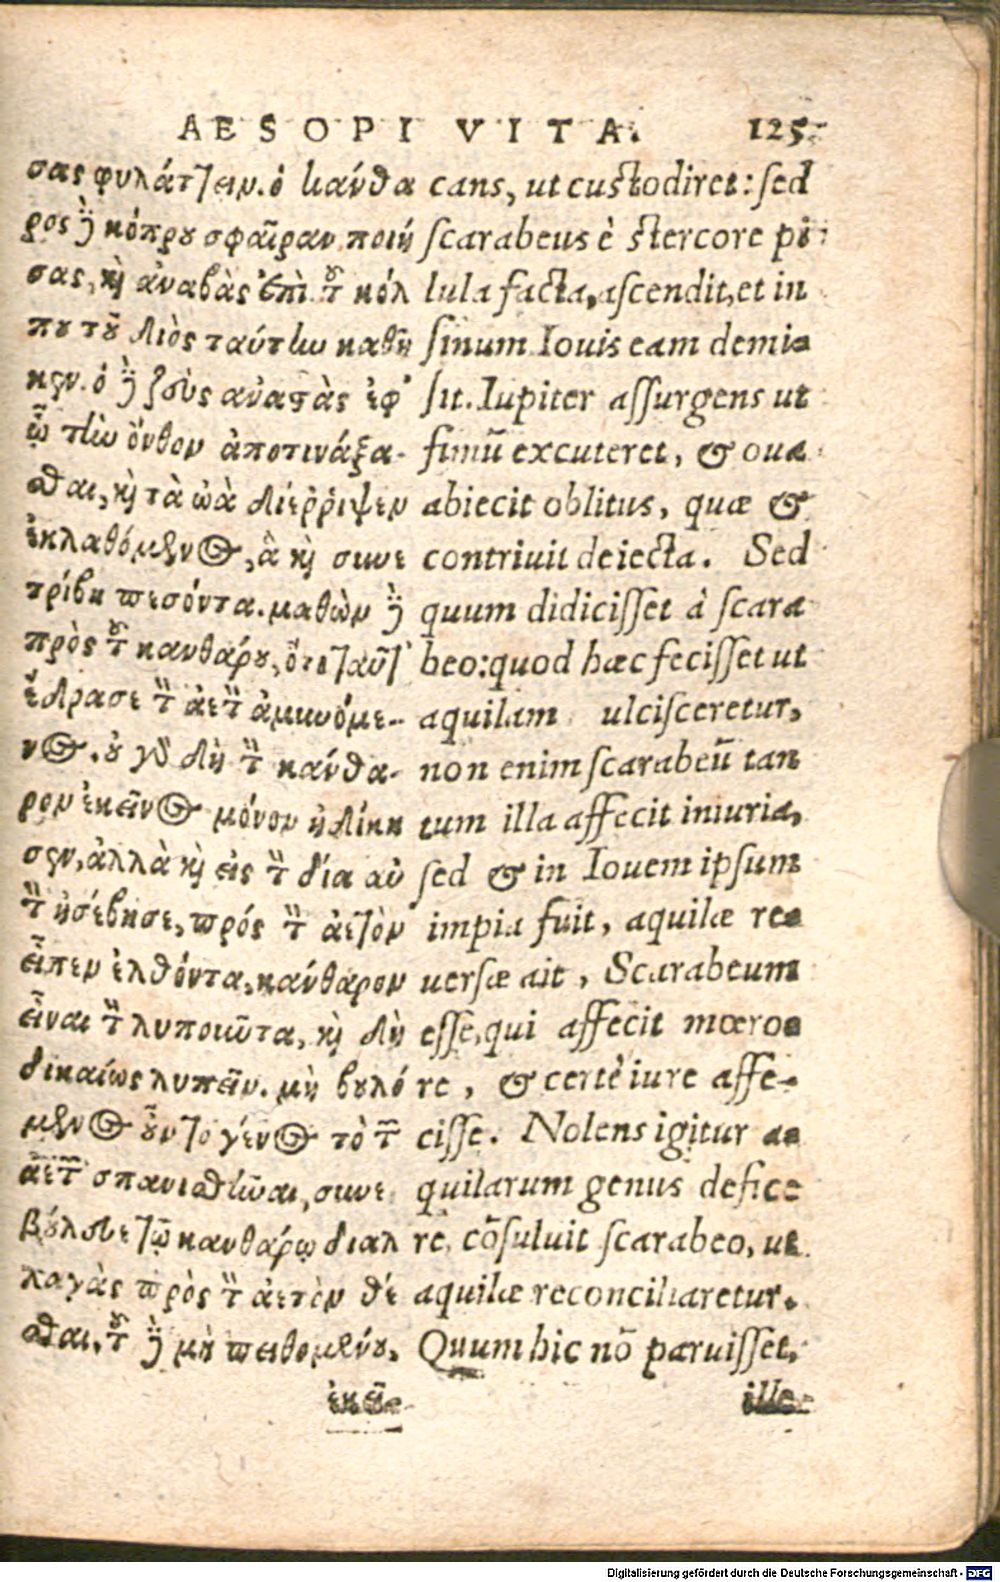 AESOPI VITA. 125.
σας φυλάττειν. ὁ κάνθα
ρος δὲ κόπρου σφαῖραν ποιή
σας, καὶ ἀναβὰς ἐπὶ τὸν κόλ
που τοῦ Διὸς ταύτην καθῆ
κεν. ὁ δὲ ζεὺς ἀναστὰς ἐφ'
ᾧ τὴν ὄνθον ἀποτινάξα-
σθαι, καὶ τὰ ὠὰ διέῤῥιψεν
ἐκλαθόμενος, ἃ καὶ συνε
τρίβη πεσόντα. μαθὼν δὲ
πρὸς τοῦ κανθάρου, ὅτι ταῦτ'
ἔδρασε τὸν ἀετὸν ἀμυνόμε-
νος. οὐ γὰρ δὴ τὸν κάνθα-
ρον ἐκεῖνος μόνον ἠδίκη
σεν, ἀλλὰ καὶ εἰς τὸν δία αὐ
τὸν ἠσέβησε, πρός τὸν ἀετὸν
εἶπεν ἐλθόντα, κάνθαρον
εἶναι τὸν λυποιῶτα, καὶ δὴ
δικαίως λυπεῖν. μὴ βουλό
μενος οὖν τὸ γένος τὸ τῶν
ἀετῶν σπανισθῆναι, συνε
βούλευε τῷ κανθάρῳ διαλ
λαγὰς πρὸς τὸν ἀετὸν θέ
σθαι. τοῦ δὲ μὴ πειθομένου,
ἐκεῖ-
cans, ut custodiret: sed
scarabeus è stercore pi
lula facta, ascendit, et in
sinum Iouis eam demi-
sit. Iupiter assurgens ut
fimū excuteret, & oua
abiecit oblitus, quæ &
contriuit deiecta. Sed
quum didicisset à scara
beo: quod hæc fecisset ut
aquilam ulcisceretur,
non enim scarabeū tan
tum illa affecit iniuria,
sed & in Iouem ipsum
impia fuit, aquilæ re-
uersæ ait, Scarabeum
esse, qui affecit mœro-
re, & certè iure affe-
cisse. Nolens igitur a-
quilarum genus defice
re, cōsuluit scarabeo, ut
aquilæ reconciliaretur.
Quum hic nō paruisset,
ille
Digitalisierung gefördert durch die Deutsche Forschungsgemeinschaft - DFG